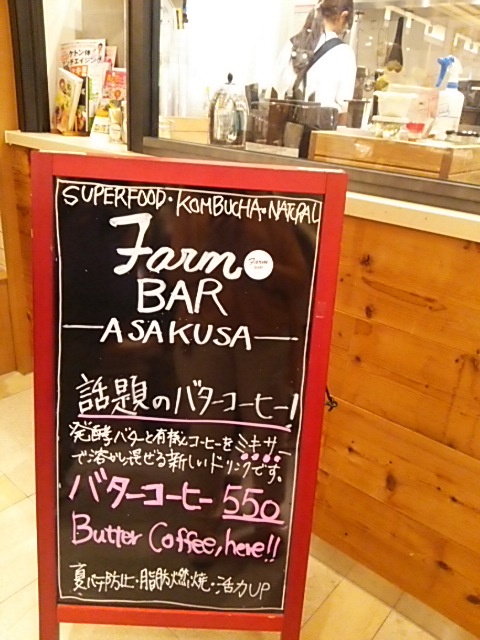 ケトン体
SUPERFOOD・KOMBUCHA・NATURAL
Farm
Farm
BAR
BAR
ASAKUSA
話題のバターコーヒー!
発酵バターと有機コーヒーをミキサー
で溶かし混ぜる新しいドリンクです。
バターコーヒー 550
Butter Coffee, here!!
夏バテ防止・脂肪燃焼・活力UP